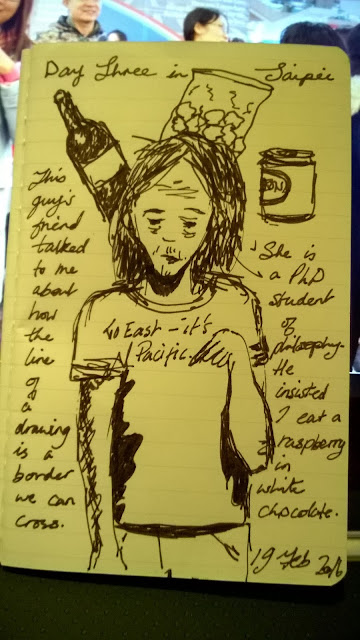 Day Three in Taipei
This
guy's
friend
talked
to me
about
how
the
line
of
a
drawing
is a
border
we can
cross.
Go East – it's
Pacific.
She is
a PhD
student
of
philosophy.
He
insisted
I eat a
raspberry
in
white
chocolate.
19 Feb 2016